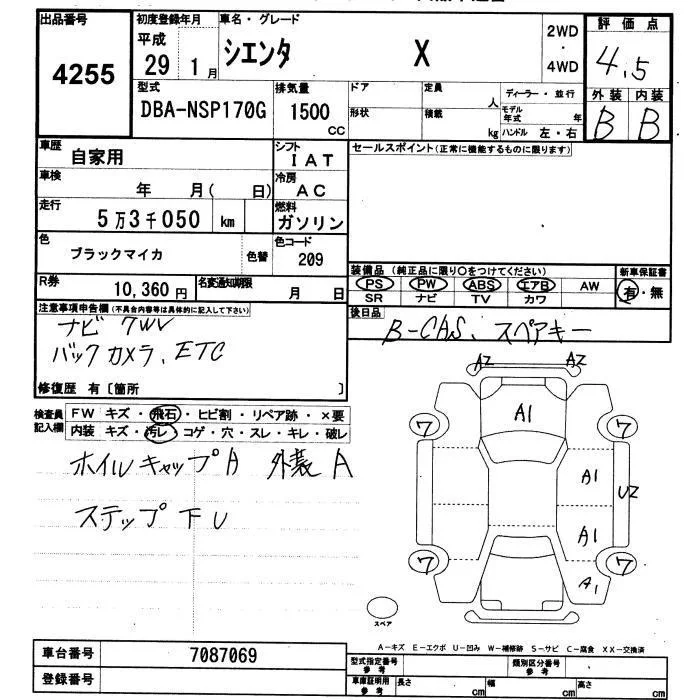 出品番号
4255
初度登録年月
平成
29 1月
車名・グレード
シエンタ X
2WD
・
4WD
評価点
4.5
外装 内装
B B
型式
DBA-NSP170G
排気量
1500
CC
ドア
形状
定員
人
積載
kg
ディーラー・並行
モデル
年式 年
ハンドル 左・右
車歴
自家用
シフト
I A T
セールスポイント(正常に機能するものに限ります)
車検
年 月( 日)
冷房
A C
走行
5万3千050 km
燃料
ガソリン
色
ブラックマイカ
色替
色コード
209
装備品 (純正品に限り○をつけてください)
新車保証書
PS PW ABS エアB AW
有・無
SR ナビ TV カワ
R券
10,360円
名変通知期限
月 日
後日品
B-CAS、スペアキー
注意事項申告欄(不具合内容等は具体的に記入して下さい)
ナビ フルセグ
バックカメラ、ETC
修復歴 有〔箇所 〕
検査員
記入欄
FW キズ・飛石・ヒビ割・リペア跡・×要
内装 キズ・汚レ・コゲ・穴・スレ・キレ・破レ
ホイルキャップA 外装A
ステップ下U
A2 A2
A1
ワ ワ
A1
U2
A1
ワ ワ
A1
スペア
A-キズ E-エクボ U-凹み W-補修跡 S-サビ C-腐食 XX-交換済
車台番号
7087069
登録番号
型式指定番号
参考
類別区分番号
参考
車庫証明用
参考
長さ cm
幅 cm
高さ cm